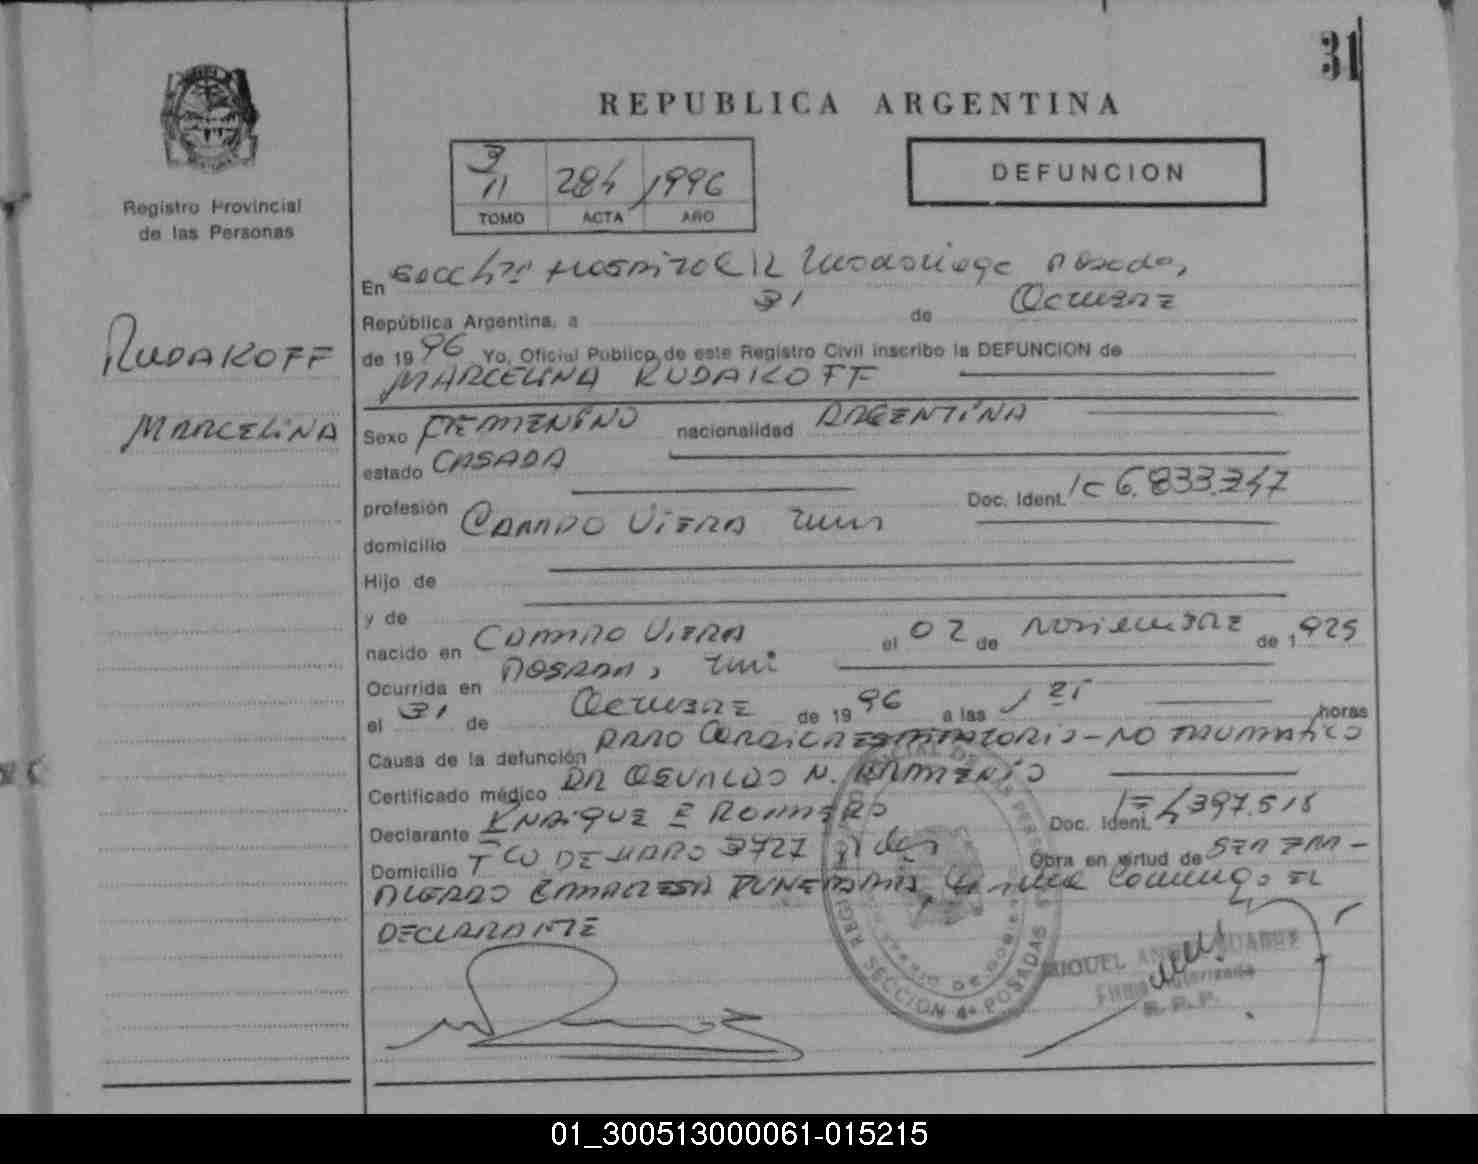 31
REPUBLICA ARGENTINA
3
11 284 1996
TOMO ACTA AÑO
DEFUNCION
Registro Provincial
de las Personas
RUDAKOFF
MARCELINA
En Posadas,
República Argentina, a 31 de Octubre
de 1996 Yo, Oficial Público, de este Registro Civil inscribo la DEFUNCION de
MARCELINA RUDAKOFF
Sexo FEMENINO nacionalidad ARGENTINA
estado CASADA
profesión Doc. Ident. 6.833.247
domicilio CAMPO VIERA
Hijo de
y de
nacido en CAMPO VIERA el 02 de NOVIEMBRE de 1925
Ocurrida en POSADAS,
el 31 de Octubre de 1996 a las horas
Causa de la defunción PARO CARDIORESPIRATORIO - NO TRAUMATICO
Certificado médico DR OSVALDO N.
Declarante ENRIQUE E ROMERO Doc. Ident. 4397.515
Domicilio DE HARO 3727 Obra en virtud de SER EM-
PLEADO EMPRESA FUNEBRE, EL
DECLARANTE
SECCION 4ª POSADAS
MIGUEL
Firma Autorizada
R.P.P.
01_300513000061-015215